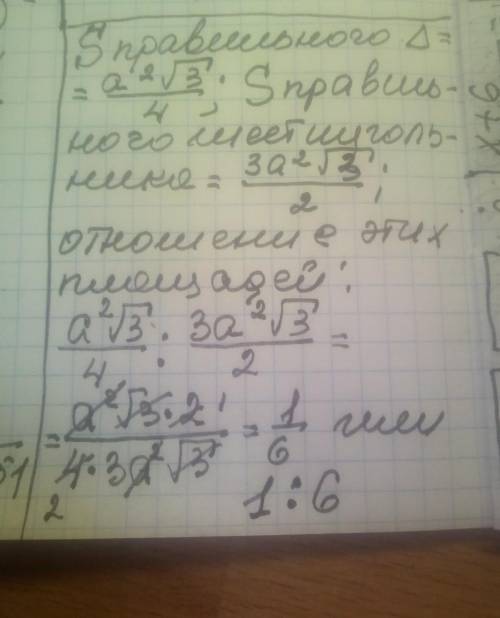 S правильного Δ=
= a²√3/4; S правиль-
ного шестиуголь-
ника = 3a²√3/2;
отношение этих
площадей:
a²√3/4 : 3a²√3/2 =
= a²√3·2 1/4·3a²√3 2 = 1/6 или
1:6